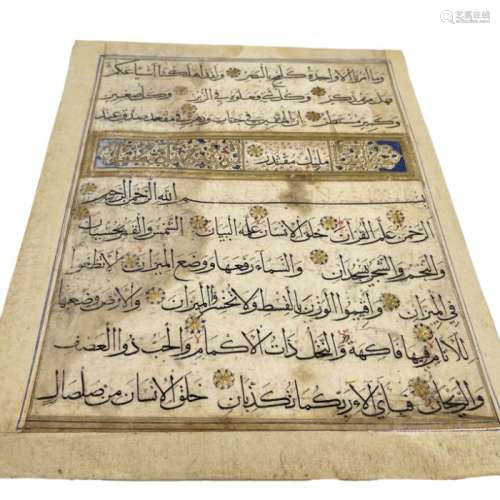 艺狐在线
وما أمرنا الا واحدة كلمح بالبصر ولقد أهلكنا أشياعكم
فهل من مدكر وكل شيء فعلوه في الزبر وكل صغير
وكبير مستطر ان المتقين في جنات ونهر في مقعد صدق عند
مليك مقتدر
بسم الله الرحمن الرحيم
الرحمن علم القرآن خلق الانسان علمه البيان الشمس والقمر بحسبان
والنجم والشجر يسجدان والسماء رفعها ووضع الميزان الا تطغوا
في الميزان واقيموا الوزن بالقسط ولا تخسروا الميزان والارض وضعها
للانام فيها فاكهة والنخل ذات الاكمام والحب ذو العصف
والريحان فبأي آلاء ربكما تكذبان خلق الانسان من صلصال